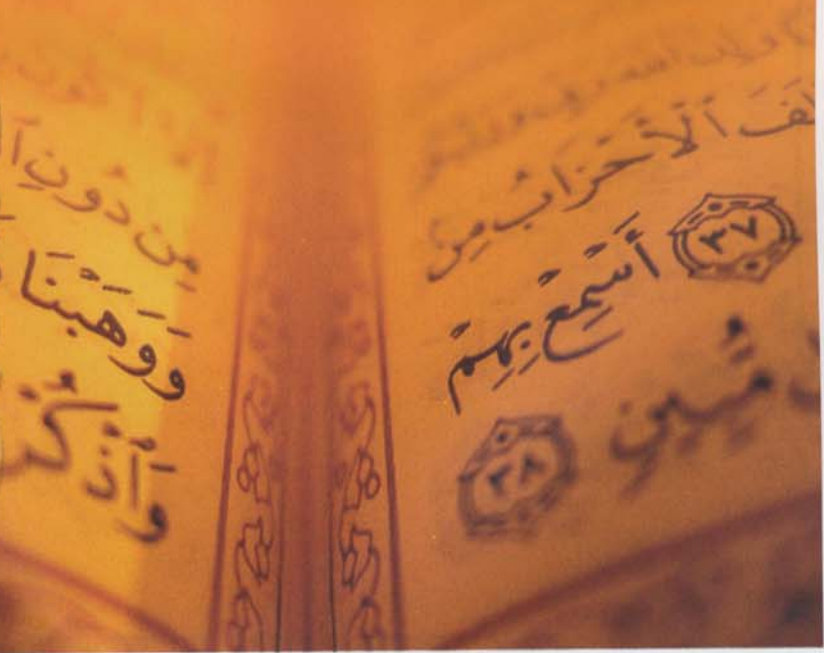 لَفَ ٱلْأَحْزَابُ مِنۢ
٣٧ أَسْمِعْ بِهِمْ
مُّبِينٍ ٣٨
مِن دُونِ ٱ
وَوَهَبْنَا
وَٱذْكُرْ